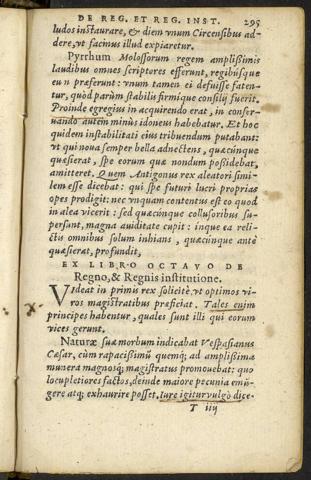 DE REG. ET REG. INST. 295
ludos instaurare, & diem vnum Circensibus ad-
dere, vt facinus illud expiaretur.
Pyrrhum Molossorum regem amplißimis
laudibus omnes scriptores efferunt, regibúsque
eũ præferunt: vnum tamen ei defuisse faten-
tur, quòd parùm stabilis firmique consilij fuerit.
Proinde egregius in acquirendo erat, in conser-
uando autem minùs idoneus habebatur. Et hoc
quidem instabilitati eius tribuendum putabant:
vt qui noua semper bella adnectens, quæcúnque
quæsierat, spe eorum quæ nondum poßidebat,
amitteret. Quem Antigonus rex aleatori simi-
lem esse dicebat: qui spe futuri lucri proprias
opes prodigit: nec vnquam contentus est eo quod
in alea vicerit: sed quæcúnque collusoribus su-
persunt, magna auiditate cupit: inque ea reli-
ctis omnibus solum inhians, quæcunque antè
quæsierat, profundit,
EX LIBRO OCTAVO DE
Regno, & Regnis institutione.
Videat in primis rex solicitè, vt optimos vi-
ros magistratibus præficiat. Tales enim
principes habentur, quales sunt illi qui eorum
vices gerunt.
Naturæ suæ morbum indicabat Vespasianus
Cæsar, cùm rapacißimũ quemq; ad amplißima
munera magnosq; magistratus promouebat: quo
locupletiores factos, deinde maiore pecunia emũ-
gere atq; exhaurire posset. iure igitur vulgò dice-
T iiij